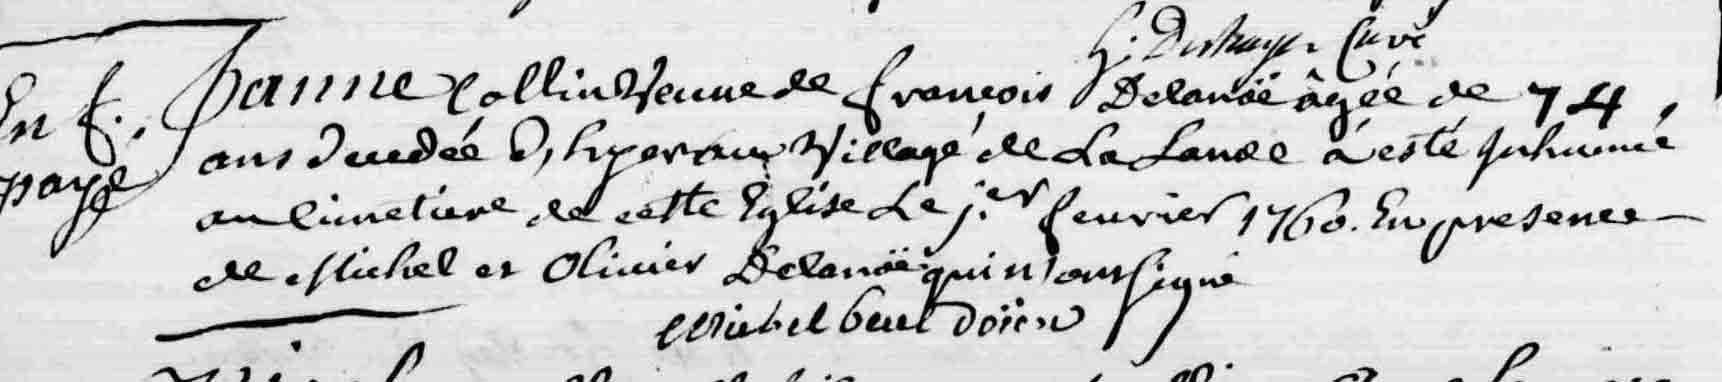 Curé
Janne Collin Veuve de françois Delanoë âgée de 74
ans décédée d'hyer au Village de La Lande à esté Inhumé
au Cimetiere de cette Eglise Le j.er feurier 1760. En presence
de Michel et Olivier Delanoë qui n'ont signé
Michel doïen
En f.
payé